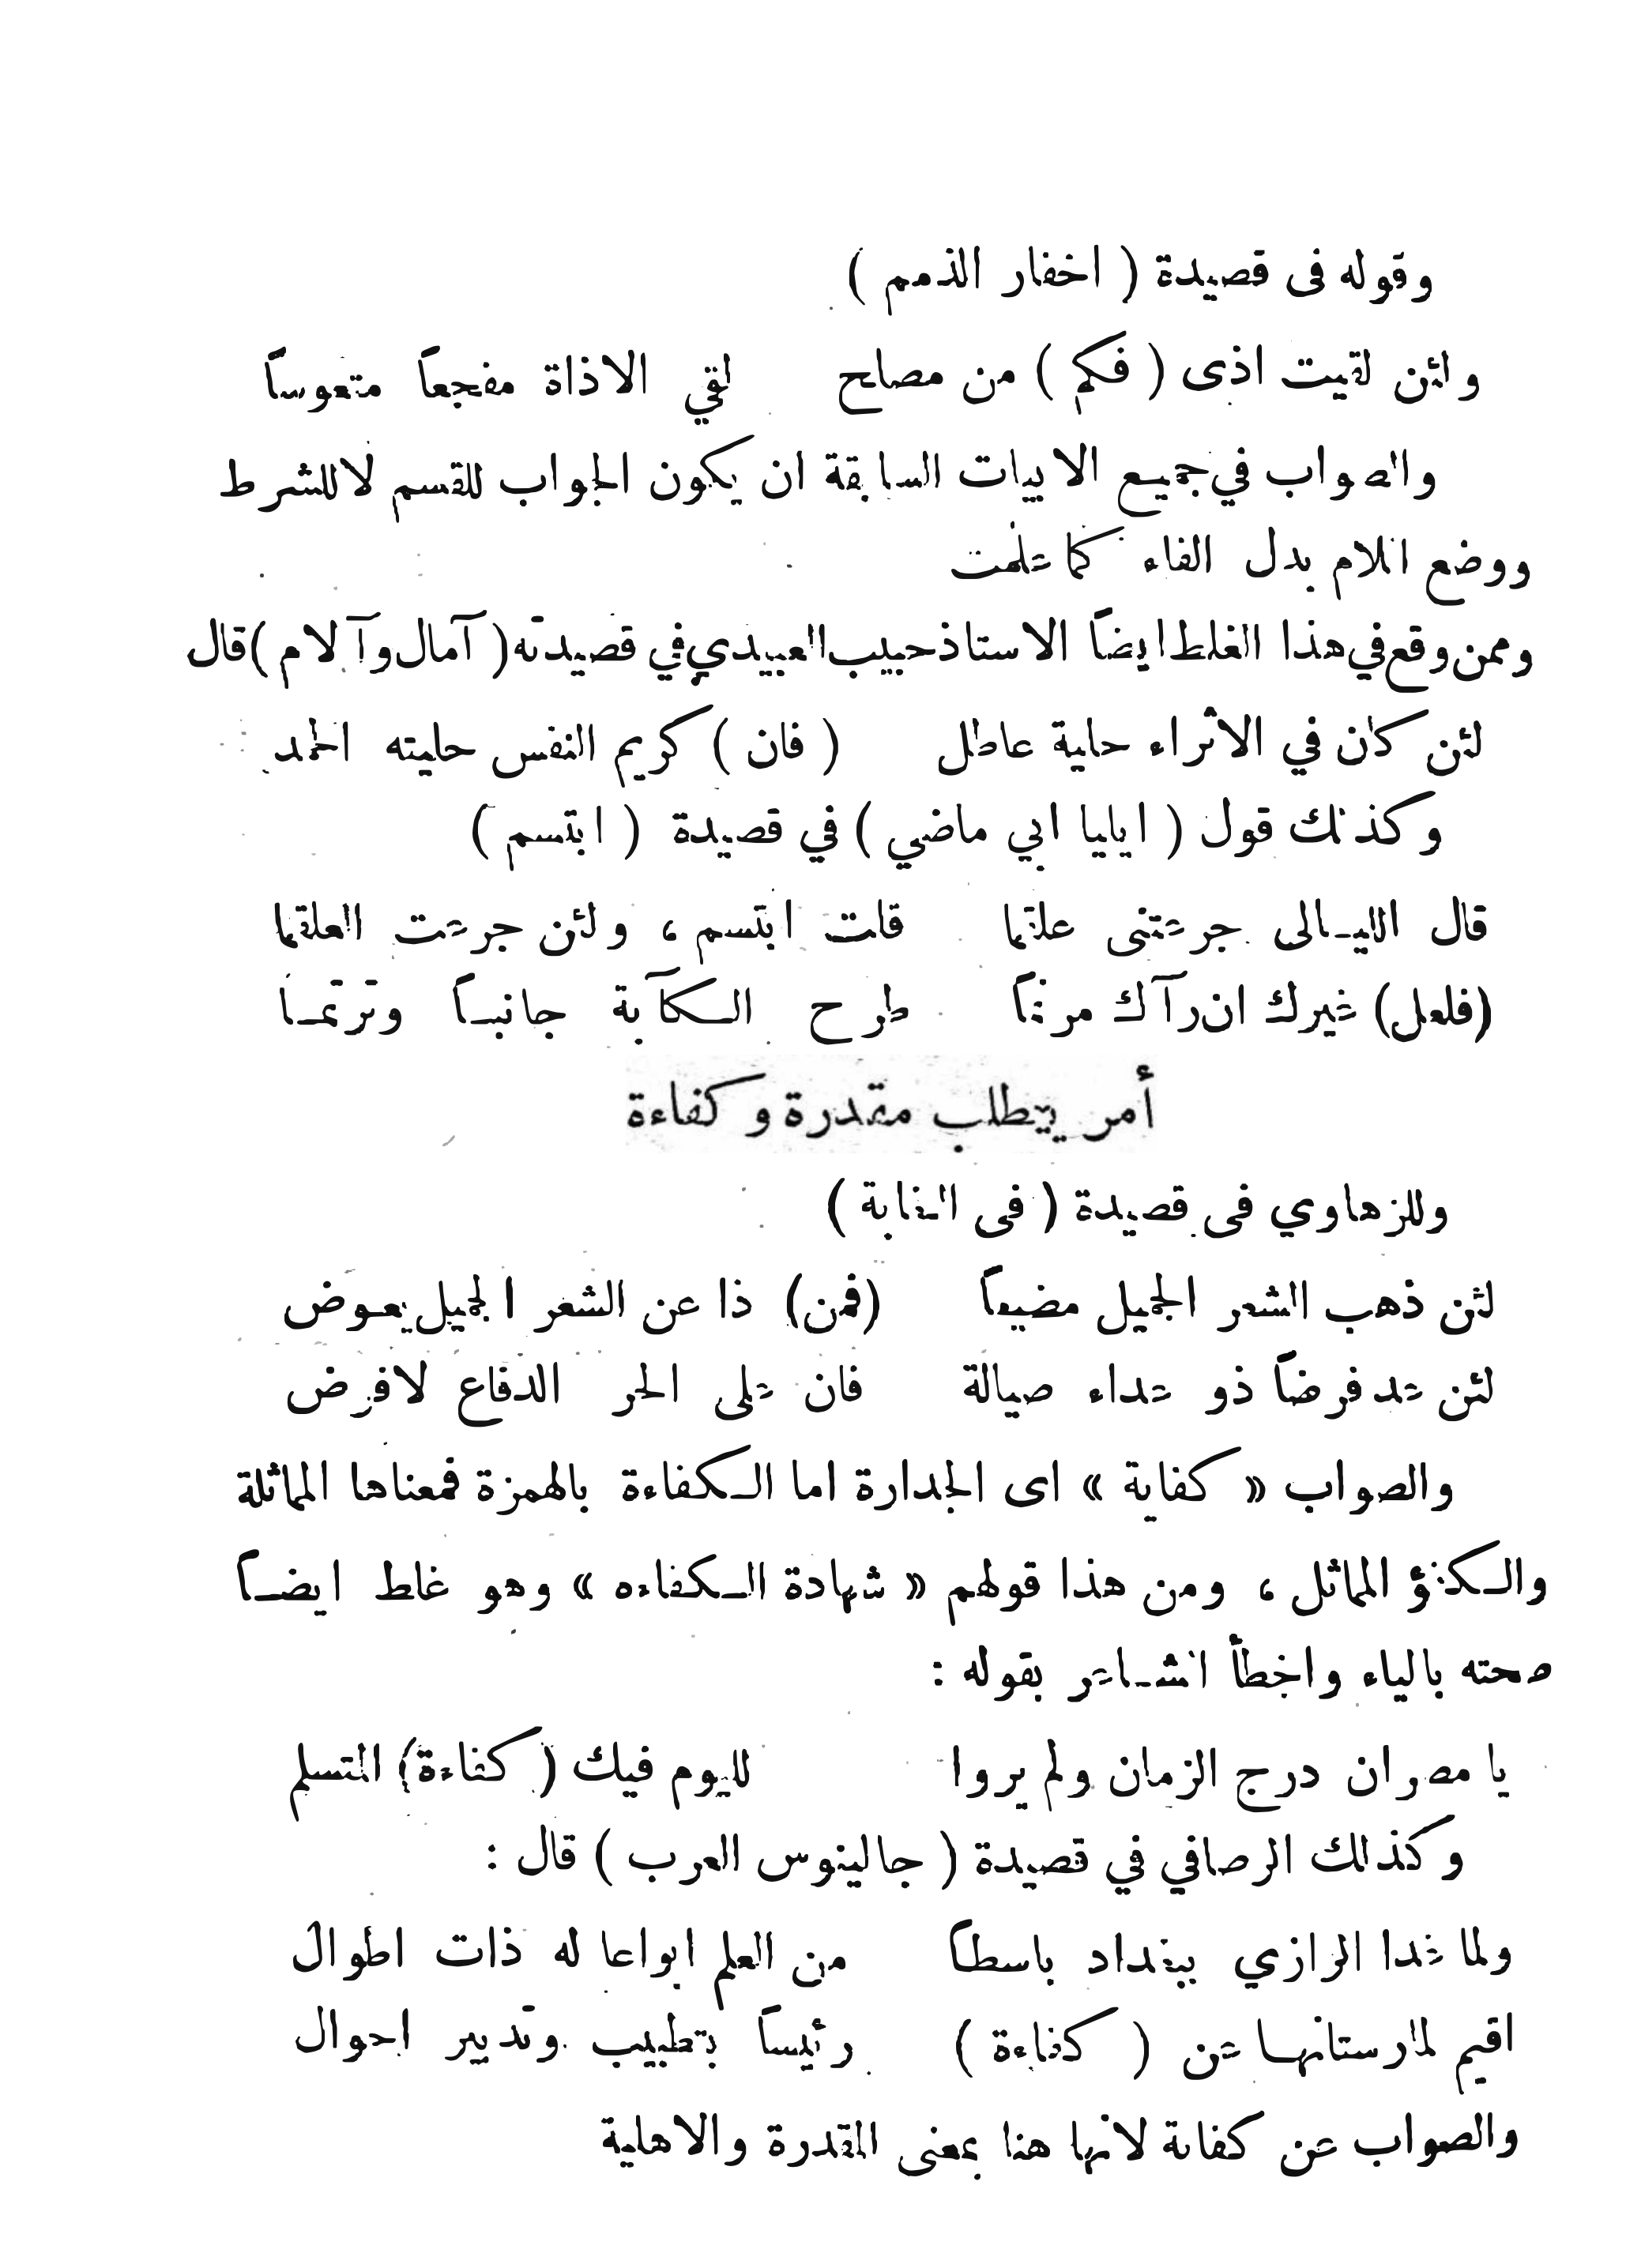 وقوله فى قصيدة ( اخفار الذمم )
ولئن لقيت اذى ( فكم ) من مصلح لقي الاذاة مفجعاً متعوساً
والصواب في جميع الابيات السابقة ان يكون الجواب للقسم لا للشرط
ووضع اللام بدل الفاء كما علمت
وممن وقع في هذا الغلط ايضاً الاستاذ حبيب العبيدي في قصيدته ( آمال وآلام ) قال
لئن كان في الاثراء حلية عاطل ( فان ) كريم النفس حليته الحمد
وكذلك قول ( ايليا ابي ماضي ) في قصيدة ( ابتسم )
قال الليـالى جرعتنى علقما قلت ابتسم ، ولئن جرعت العلقما
(فلعل) غيرك ان رآك مرنماً طرح الـكآبة جانبـاً وترنمـا
أمر يتطلب مقدرة وكفاءة
وللزهاوي فى قصيدة ( فى الغابة )
لئن ذهب الشعر الجميل مضيعاً (فمن) ذا عن الشعر الجميل يعـوض
لئن عد فرضاً ذو عداء صيالة فان على الحر الدفاع لافرض
والصواب « كفاية » اى الجدارة اما الـكفاءة بالهمزة فمعناها المماثلة
والـكفؤ المماثل ، ومن هذا قولهم « شهادة الـكفاءه » وهو غلط ايضـاً
صحته بالياء واخطأ الشـاعر بقوله :
يا مصر ان درج الزمان ولم يروا لليوم فيك (كفاءة) المتسلم
وكذلك الرصافي في قصيدة ( جالينوس العرب ) قال :
ولما غدا الرازي ببغداد باسطاً من العلم ابواعا له ذات اطوال
اقيم لمارستانهـا عن ( كفاءة ) رئيساً بتطبيب وتدبير احوال
والصواب عن كفاية لانها هنا بمعنى المقدرة والاهلية